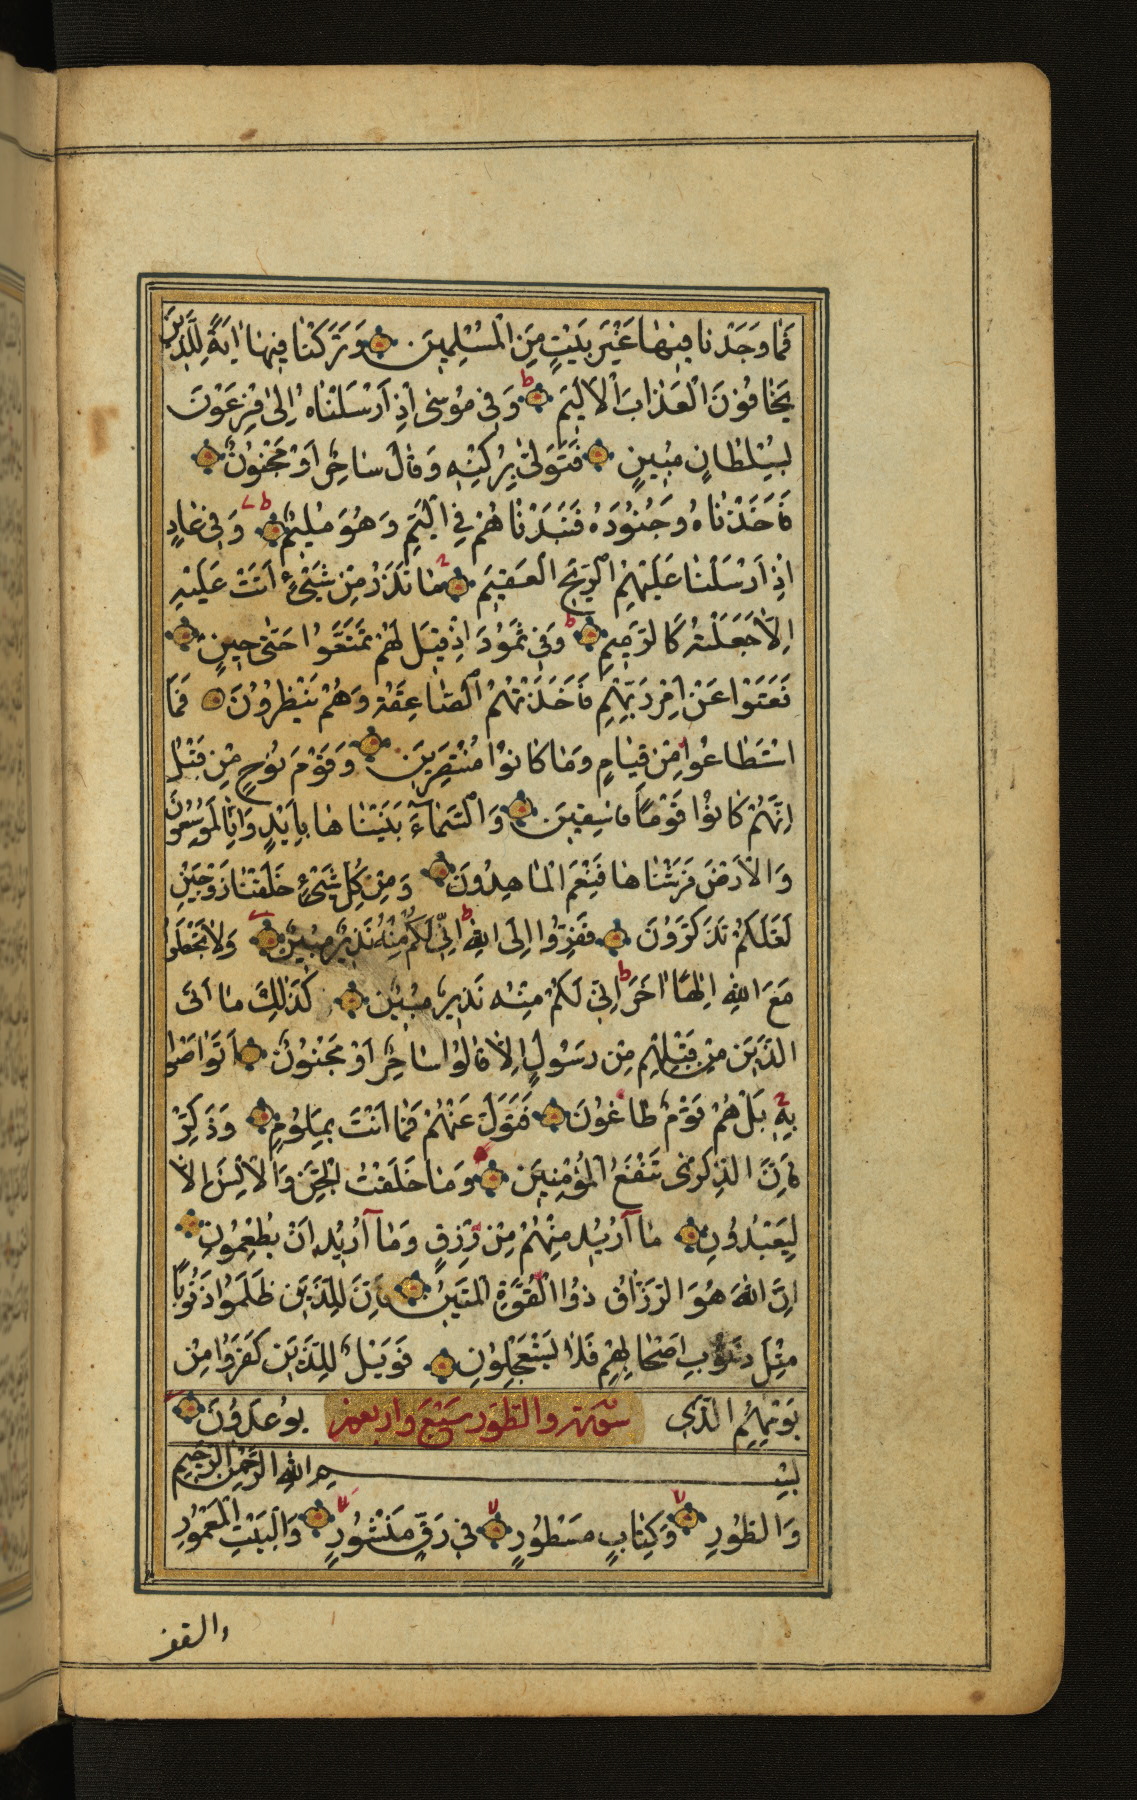 فَمَا وَجَدْنَا فِيهَا غَيْرَ بَيْتٍ مِنَ الْمُسْلِمِينَ وَتَرَكْنَا فِيهَا اٰيَةً لِلَّذِينَ
يَخَافُونَ الْعَذَابَ الْاَلِيمَ ط وَفِي مُوسٰى اِذْ اَرْسَلْنَاهُ اِلٰى فِرْعَوْنَ
بِسُلْطَانٍ مُبِينٍ فَتَوَلّٰى بِرُكْنِهِ وَقَالَ سَاحِرٌ اَوْ مَجْنُونٌ
فَاَخَذْنَاهُ وَجُنُودَهُ فَنَبَذْنَاهُمْ فِي الْيَمِّ وَهُوَ مُلِيمٌ ط وَفِي عَادٍ
اِذْ اَرْسَلْنَا عَلَيْهِمُ الرِّيحَ الْعَقِيمَ مَا تَذَرُ مِنْ شَيْءٍ اَتَتْ عَلَيْهِ
اِلَّا جَعَلَتْهُ كَالرَّمِيمِ ط وَفِي ثَمُودَ اِذْ قِيلَ لَهُمْ تَمَتَّعُوا حَتّٰى حِينٍ
فَعَتَوْا عَنْ اَمْرِ رَبِّهِمْ فَاَخَذَتْهُمُ الصَّاعِقَةُ وَهُمْ يَنْظُرُونَ فَمَا
اسْتَطَاعُوا مِنْ قِيَامٍ وَمَا كَانُوا مُنْتَصِرِينَ وَقَوْمَ نُوحٍ مِنْ قَبْلُ
اِنَّهُمْ كَانُوا قَوْمًا فَاسِقِينَ وَالسَّمَاءَ بَنَيْنَاهَا بِاَيْدٍ وَاِنَّا لَمُوسِعُونَ
وَالْاَرْضَ فَرَشْنَاهَا فَنِعْمَ الْمَاهِدُونَ وَمِنْ كُلِّ شَيْءٍ خَلَقْنَا زَوْجَيْنِ
لَعَلَّكُمْ تَذَكَّرُونَ فَفِرُّوا اِلَى اللهِ ط اِنِّي لَكُمْ مِنْهُ نَذِيرٌ مُبِينٌ وَلَا تَجْعَلُوا
مَعَ اللهِ اِلٰهًا اٰخَرَ ط اِنِّي لَكُمْ مِنْهُ نَذِيرٌ مُبِينٌ كَذٰلِكَ مَا اَتَى
الَّذِينَ مِنْ قَبْلِهِمْ مِنْ رَسُولٍ اِلَّا قَالُوا سَاحِرٌ اَوْ مَجْنُونٌ اَتَوَاصَوْا
بِهِ بَلْ هُمْ قَوْمٌ طَاغُونَ فَتَوَلَّ عَنْهُمْ فَمَا اَنْتَ بِمَلُومٍ وَذَكِّرْ
فَاِنَّ الذِّكْرٰى تَنْفَعُ الْمُؤْمِنِينَ وَمَا خَلَقْتُ الْجِنَّ وَالْاِنْسَ اِلَّا
لِيَعْبُدُونِ مَا اُرِيدُ مِنْهُمْ مِنْ رِزْقٍ وَمَا اُرِيدُ اَنْ يُطْعِمُونِ
اِنَّ اللهَ هُوَ الرَّزَّاقُ ذُو الْقُوَّةِ الْمَتِينُ فَاِنَّ لِلَّذِينَ ظَلَمُوا ذَنُوبًا
مِثْلَ ذَنُوبِ اَصْحَابِهِمْ فَلَا يَسْتَعْجِلُونِ فَوَيْلٌ لِلَّذِينَ كَفَرُوا مِنْ
يَوْمِهِمُ الَّذِي سورة والطور سبع واربعين يُوعَدُونَ
بِسْمِ اللهِ الرَّحْمٰنِ الرَّحِيمِ
وَالطُّورِ وَكِتَابٍ مَسْطُورٍ فِي رَقٍّ مَنْشُورٍ وَالْبَيْتِ الْمَعْمُورِ
والسقف